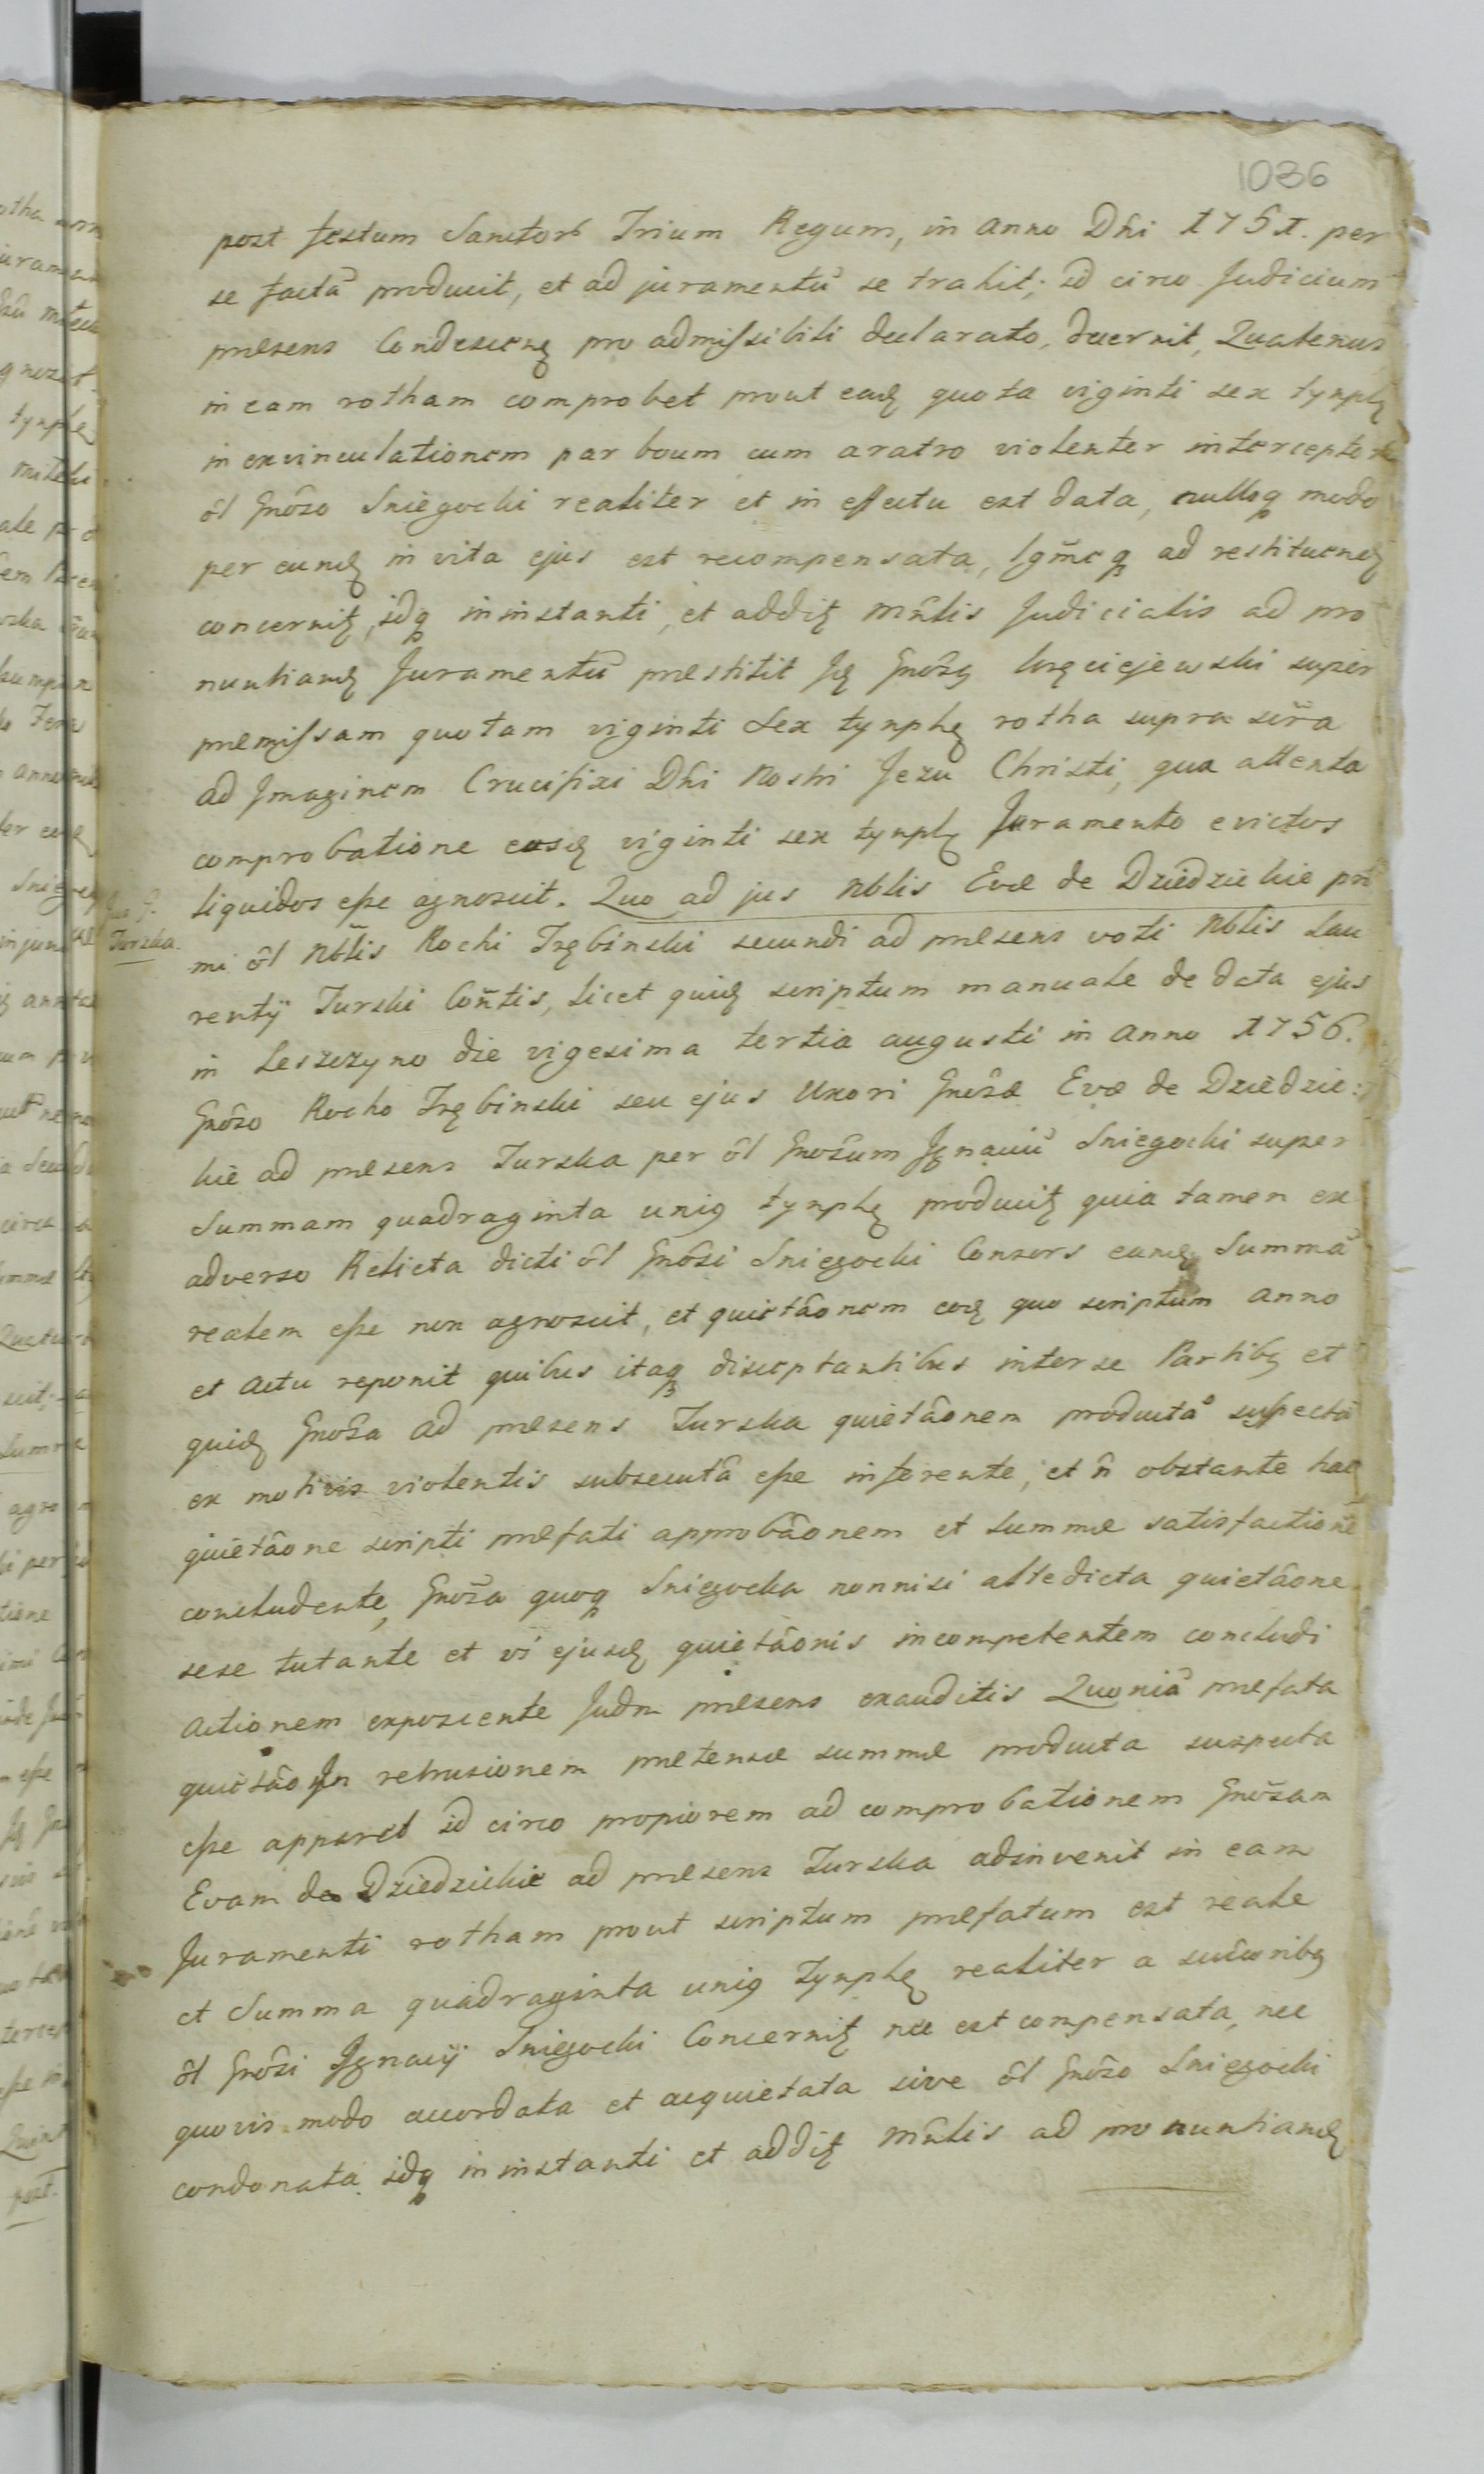 1036
post festum Sanctorũ Trium Regum, in anno Dñi 1751. per
se factũ producit, et ad juramentũ se trahit; id circo Judicium
præsens Condescenꝫ pro admissibili declarato, decernit, Quatenus
in eam rotham comprobet prout eadꝫ quota viginti sex tynphꝫ
in exvinculationem par boum cum aratro violenter interceptorũ
ôl Gnôso Sniegocki realiter et in effectu est data, nulloqꝫ modo
per eundꝫ in vita ejus est recompensata, lgm̃eqꝫ ad restituenꝫ
concernitꝫ, idqꝫ in instanti, et additꝫ Mn̂lis Judicialis ad pro
nuntianđ Juramentũ præstitit Jꝫ Gnôsꝫ Kręciejewski super
præmissam quotam viginti sex tynphꝫ rotha supra scr̃a
ad Jmaginem Crucifixi Dñi Nostri Jezu Christi, qua attenta
comprobatione eosdꝫ viginti sex tynphꝫ Juramento evictos
liquidos esse agnoscit. Quo ad jus Nblis Evæ de Dziedzickie pri
Jus G.
Turska.
mi ôl Nblis Rochi Trębinski secundi ad præsens voti Nblis Lau
rentij Turski Cõntis, licet quidꝫ scriptum manuale de data ejus
in Leszczyno die vigesima tertia augusti in anno 1756.
Gnôso Rocho Trębinski seu ejus Uxori Gnôsæ Evæ de Dziedzic:
kie ad præsens Turska per ôl Gnosum Jgnaciũ Sniegocki super
Summam quadraginta unius tynphꝫ producitꝫ quia tamen ex
adverso Relicta dicti ôl Gnôsi Sniegocki Consors eandꝫ Summã
realem esse non agnoscit, et quietâonem eodꝫ quo scriptum anno
et actu reponit quibus itaqꝫ disceptantibus inter se Partibꝫ et
quidꝫ Gnôsa ad præsens Turska quietâonem productã suspectã
ex motivis violentis subsecutã esse inferente, et ñ obstante hac
quietâone scripti præfati approbâonem et summæ satisfactionẽ
concludente, Gnôsa quoqꝫ Sniegocka nonnisi altedicta quietâone
sese tutante et vi ejusdꝫ quietâonis incompetentem concludi
actionem exposcente Judm præsens exauditis Quoniã præfata
quietâo Jn retrusionem prætensæ summæ producta suspecta
esse apparet id circo propiorem ad comprobationem Gnôsam
Evam de Dziedzickie ad præsens Turska adinvenit in eam
Juramenti rotham prout scriptum præfatum est reale
et Summa quadraginta unius Tynphꝫ realiter a succ̃oribꝫ
ôl Gnôsi Jgnacij Sniegocki Concernitꝫ nec est compensata, nec
quovis modo accordata et acquietata sive ôl Gnôso Sniegocki
condonata idqꝫ in instanti et additꝫ Mn̂lis ad pronuntianđ